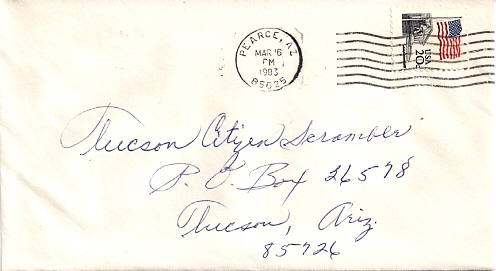 PEARCE, AZ
MAR 6
PM
1983
85625
USA 20c
Tucson Citizen Scrambler
P. O. Box 26578
Tucson, Ariz.
85726